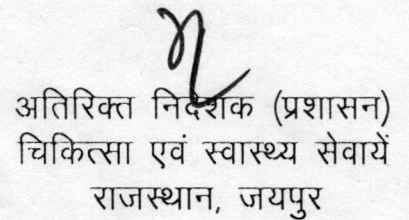 अतिरिक्त निदेशक (प्रशासन)
चिकित्सा एवं स्वास्थ्य सेवायें
राजस्थान, जयपुर